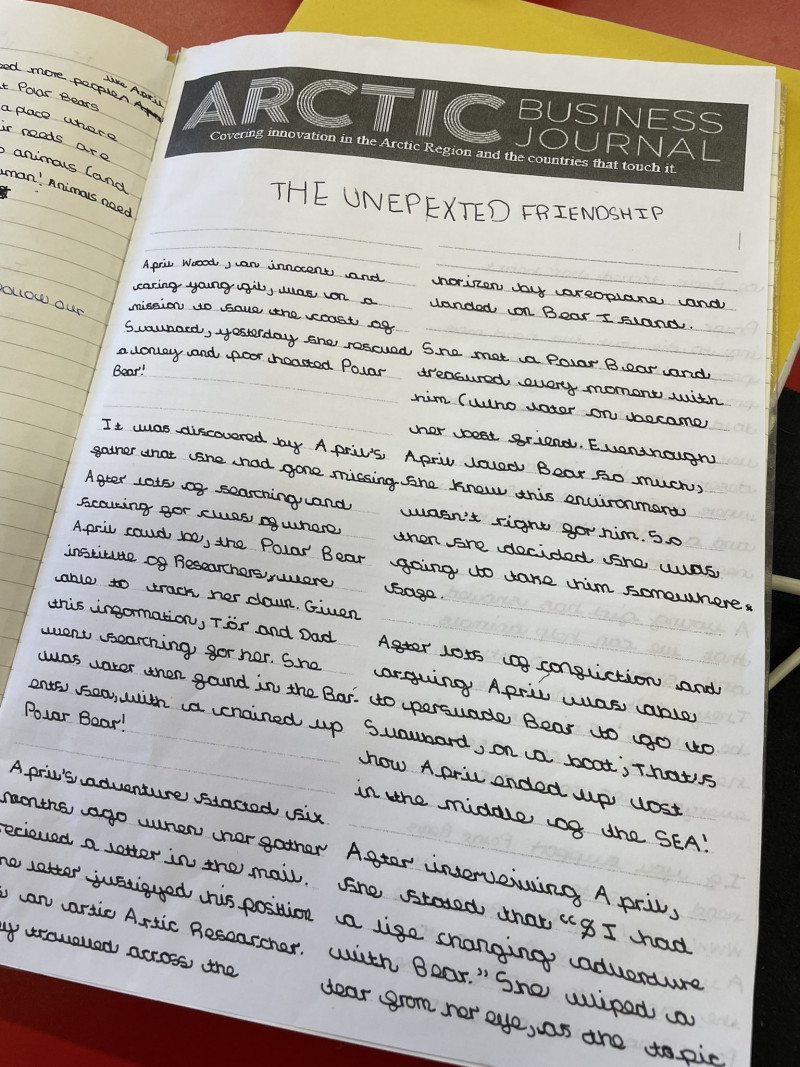 eed more peoples like April
t Polar Bears
a place where
ir needs are
animals (and
uman! Animals need
ollow our
ARCTIC BUSINESS JOURNAL
Covering innovation in the Arctic Region and the countries that touch it.
THE UNEPEXTED FRIENDSHIP
April Wood, an innocent and
caring young gil, was on a
mission to save the coast of
Svawbard, yesterday she rescued
a lonley and poor hearted Polar
Bear!
It was discovered by April's
father that she had gone missing.
After lots of searching and
scouting for clues of where
April could be, the Polar Bear
institute of Researchers, were
able to track her down. Given
this information, Tör and Dad
went searching for her. She
was later then found in the Bar-
ents sea, with a chained up
Polar Bear!
April's adventure started six
months ago when her father
recieved a letter in the mail.
he letter justifyed his position
s an artic Artic Researcher.
ey travelled across the
horizen by areoplane and
landed on Bear Island.
She met a Polar Bear and
treasured every moment with
him (who later on became
her best friend. Eventhough
April loved Bear so much,
she knew this environment
wasn't right for him. So
then she decided she was
going to take him somewhere
safe.
After lots of confliction and
arguing April was able
to persuade Bear to go to
Svawbard, on a boat; That's
how April ended up lost
in the middle of the SEA!
After interveiwing April,
she stated that "I had
a life changing adventure
with Bear." She wiped a
tear from her eye, as the topic